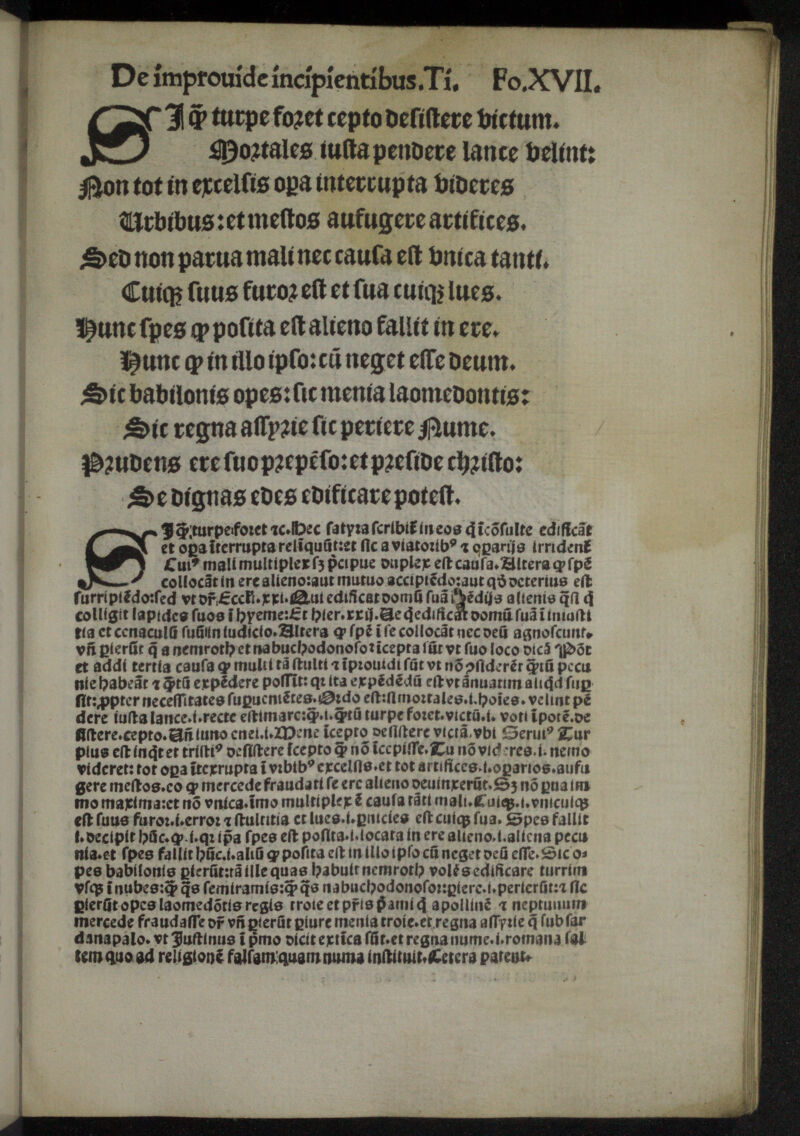 De improuide incipientibus.Ti. Fo.XVII.
SI ꝙ̃ turpe foꝛet cepto deſiſtere victum.
Moꝛtales iuſta pendere lance velint:
Non tot in excelſis oꝑa interrupta videres
Urbibus: et meſtos aufugere artifices.
Sed non parua mali nec cauſa eſt vnica tanti.
Cuiqꝫ ſuus furoꝛ eſt et ſua cuiqꝫ lues.
Hunc ſpes ꝙ poſita eſt alieno fallit in ere.
Hunc ꝙ in illo ipſo: cũ neget eſſe deum.
Sic babilonis opes: ſic menia laomedontis:
Sic regna aſſyꝛie ſic periere Nume.
Pꝛudens ere ſuo pꝛepẽſo: et pꝛeſide chꝛiſto:
Se dignas edes edificare poteſt.
SI ꝙ̃ turpe foꝛet ⁊c. Hec ſatyra ſcribiť in eos q̇ ĩcõſulte edificãt
et oꝑa ĩterrupta reliquũt: et ſic a viatoꝛibꝰ ⁊ oꝑarijs irridenť
Cuiꝰ mali multiplex ſꝫ p̃cipue duplex eſt cauſa. Altera ꝙ ſpẽ
collocãt in ere alieno: aut mutuo accipiẽdo: aut qď deterius eſt
ſurripiẽdo: ſed vt dr̃. Eccľi. xxi. Qui edificat domũ ſuã ĩpẽdijs alienis q̃ſi q̇
colligit lapides ſuos ĩ hyeme: Et hier. xxij. Ue q̇ edificat domũ ſuã ĩ iniuſti
tia et cenaculũ ſuũ in iudicio. Altera ꝙ ſpẽ ĩ ſe collocãt nec deũ agnoſcunt.
vñ ꝑierũt q̃ a nemroth et nabuchodonoſoꝛ ĩcepta ſũt vt ſuo loco dicã Põt
et addi tertia cauſa ꝙ multi tã ſtulti ⁊ ĩpꝛouidi ſũt vt nõ ꝯſiderẽt ꝙ̃tũ pecu
nie habeãt ⁊ ꝙ̃tũ expẽdere poſſit: qꝛ ita expẽdẽdũ eſt vt ãnuatim aliqd ſuꝑ
ſit: ꝓpter neceſſitates ſuꝑueniẽtes. Oꝛdo eſt: ſi moꝛtales. i. hoĩes. velint pẽ
dere iuſta lance. i. recte eſtimare: ꝙ̃. i. ꝙ̃tũ turpe foꝛet. victũ. i. voti ĩpotẽ. de
ſiſtere. cepto. Uñ iuno enei. i. Mene ĩcepto deſiſtere victã. vbi Seruiꝰ Tur
pius eſt inq̇t et triſtiꝰ deſiſtere ĩcepto ꝙ̃ nõ ĩcepiſſe. Tu nõ videres. i. nemo
videret: tot oꝑa ĩterrupta ĩ vꝛbibꝰ excelſis. et tot artifices. i. oꝑarios. aufu
gere meſtos. eo ꝙ mercede fraudati ſe ere alieno deuinxerũt. Sꝫ nõ ꝑua im
mo maxima: et nõ vnica. ĩmo multiplex ẽ cauſa tãti mali. Cuiqꝫ. i. vnicuiqꝫ
eſt ſuus furoꝛ. i. erroꝛ ⁊ ſtultitia et lues. i. ꝑnicies eſt cuiqꝫ ſua. Spes fallit
i. decipit hũc. ꝙ. i. qꝛ ip̃a ſpes eſt poſita. i. locata in ere alieno. i. aliena pecu
nia. et ſpes fallit hũc. i. aliũ ꝙ poſita eſt in illo ipſo cũ neget deũ eſſe. Sic o⸗
pes babilonis ꝑierũt: tã ille quas habuit nemroth volẽs edificare turrim
vſqꝫ ĩ nubes: ꝙ̃ q̃s ſemiramis: ꝙ̃ q̃s nabuchodonoſoꝛ: ꝑiere. i. perierũt: ⁊ ſic
ꝑierũt opes laomedõtis regis troie et pr̃is p̃ami q̇ apollinẽ ⁊ neptunum
mercede fraudaſſe dr̃ vñ ꝑierũt ꝑiure menia troie. et regna aſſyrie q̃ ſub ſar
danapalo. vt Iuſtinus ĩ p̃mo dicit extĩcta ſũt. et regna nume. i. romana ſal
tem quo ad religionẽ falſam: quam numa inſtituit. Cetera patent.